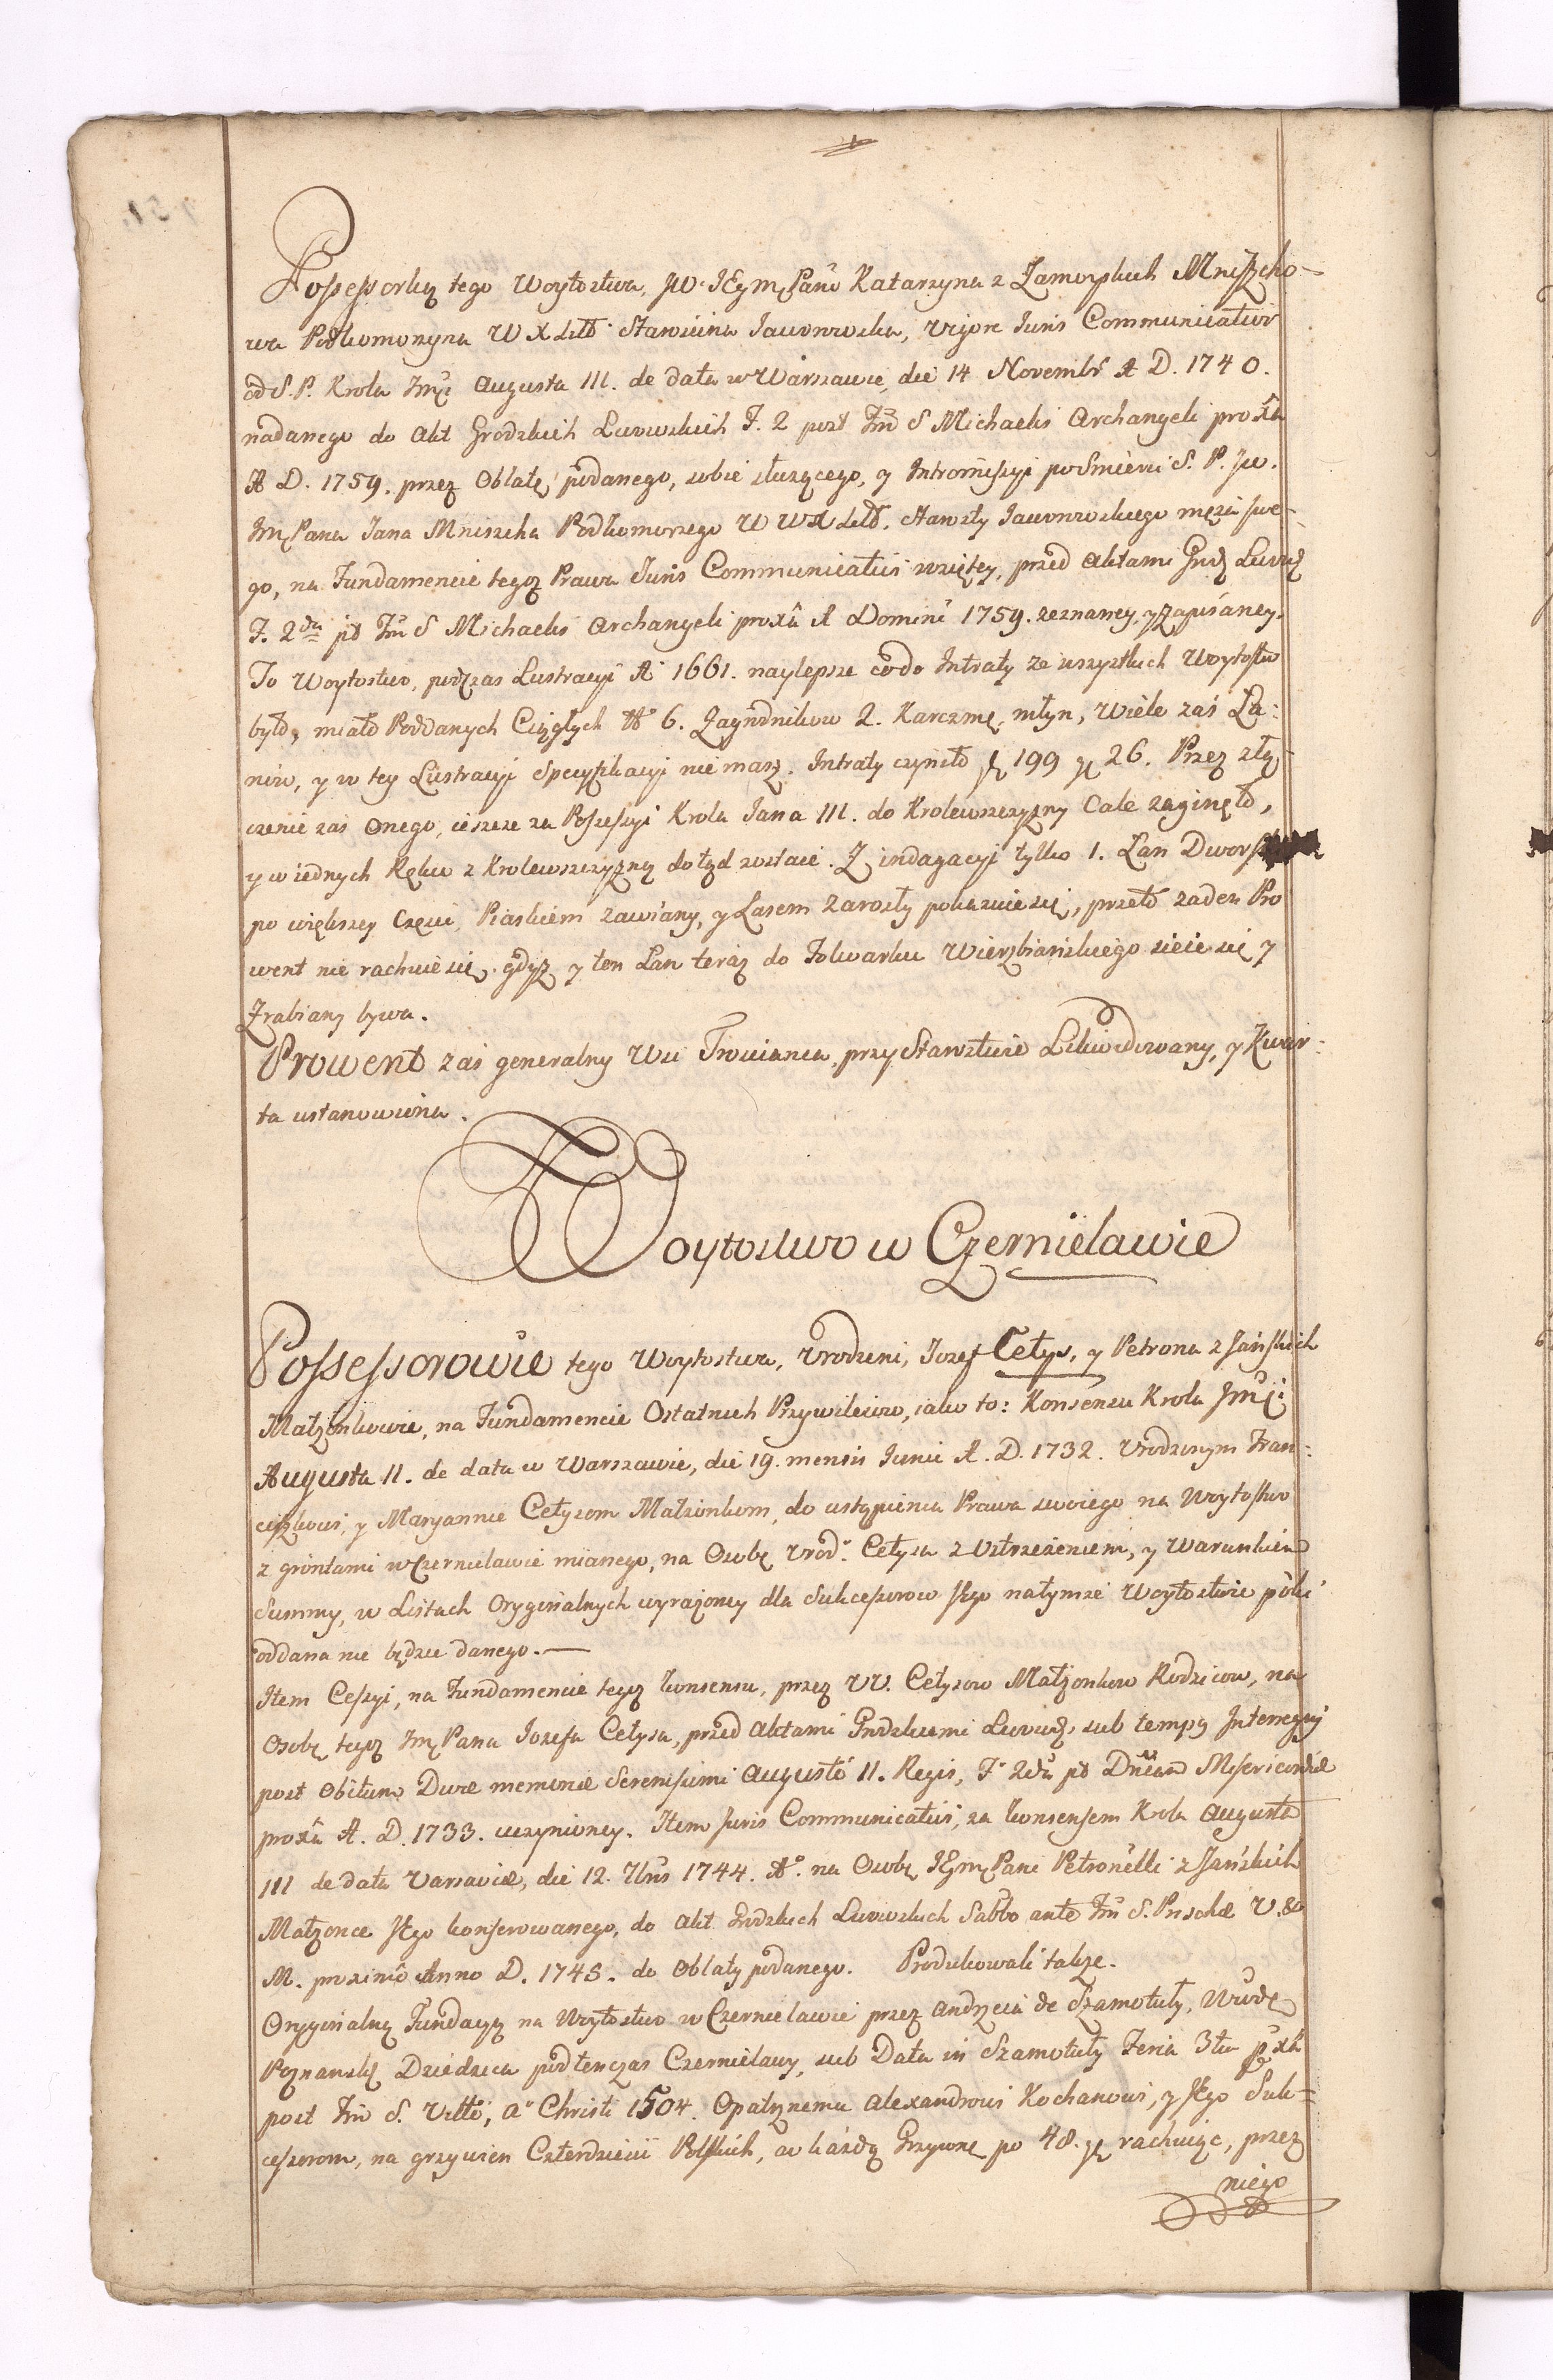 Possessorką tego Woytostwa, JW. JEymć Pani Katarzyna z Zamoyskich Mniszcho-
wa Podkomorzyna W X Litt. Starościna Jaworowska, vigore Juris Communicativi
od S. P. Krola Jmći Augusta III. de data w Warszawie, die 14 Novembr A D. 1740.
nadanego do Akt Grodzkich Lwowskich F. 2 post Fm S Michaelis Archangeli proxa
A D. 1759. przez Oblatę podanego, sobie służącego, y Intromissyi po Smierci S. P. Jw.
Jmć Pana Jana Mniszcha Podkomorzego W W X Litt. Starosty Jaworowskiego męża swe-
go, na Fundamencie tegoz Prawa Juris Communicativi wziętey, przed Aktami Grodz Lwowz
F. 2da pt Fm S Michaelis Archangeli proxa A Domini 1759. zeznaney, y Zapisaney.
To Woytostwo, podczas Lustracyi A 1661. naylepsze co do Intraty ze wszystkich Woytostw
było, miało Poddanych Ciągłych No 6. Zagrodnikow 2. Karczmę, młyn, Wiele zaś Ła:
now, y w tey Lustracyi Specyfikacyi nie masz. Intraty czyniło zł 199 gr 26. Przez złą-
czenie zaś Onego, ieszcze za Possessyi Krola Jana III. do Krolewszczyzny Cale zaginęło,
y w iednych Ręku z Krolewszczyzną dotąd zostaie. Z indagacyi tylko 1. Łan Dworski
po większey Częsci Piaskiem zawiany, y Lasem Zarosły pokazuie się, przeto żaden Pro
went nie rachuie się, gdyż y ten Łan teraz do Folwarku Wierzbiańskiego sieie się y
Zrabiany bywa.
Prowent zaś generalny Wsi Trościanca przy Starostwie Likwidowany, y Kwar:
ta ustanowiona.
Woytostwo w Czernielawie
Possessorowie tego Woytostwa, Urodzeni, Jozef Cetys, y Petrona z Jańskich
Małżonkowie, na Fundamencie Ostatnich Przywileiow, iako to: Konsensu Krola Jmći
Augusta II. de data w Warszawie, die 19. mensis Junii A. D. 1732. Urodzonym Fran:
ciszkowi, y Maryannie Cetysom Małżonkom, do ustąpienia Prawa swoiego na Woytostwo
z gruntami w Czernielawie mianego, na Osobę Urod. Cetysa z Ustrzeżeniem, y Warunkiem
Summy, w Listach Oryginalnych wyrażoney dla Sukcessorow Jego na tymże Woytostwie poki
oddana nie będzie danego.—
Item Cessyi, na Fundamencie tegoz konsensu, przez UU. Cetysow Małżonkow Rodzicow, na
Osobę tegoz Jmć Pana Jozefa Cetysa, przed Aktami Grodzkiemi Lwowz, sub tempg Interregnj
post Obitum Divæ memoriæ Serenissimi Augusti II. Regis, F. 2da pt Dnicam Misericordiæ
proxa A. D. 1733. uczynioney. Item Juris Communicativi, za konsensem Krola Augusta
III de data Varsaviæ, die 12. 7bris 1744. Ao. na Osobę JEymć Pani Petronelli z Jańskich
Małżonce Jego konferowanego, do Akt Grodzkich Lwowskich Sabbo ante Fm S. Priscæ V. &
M. proximo Anno D. 1745. do Oblaty podanego. Produkowali takze.
Oryginalną Fundacyą na Woytostwo w Czernielawie przez Andrzeia de Szamotuły, Wwodę
Poznanską Dziedzica podtenczas Czernielawy, sub Data in Szamotuły Feria 3tia pxa
post Fm S. Viti, Ao Christi 1504. Opatrznemu Alexandrowi Kochanowi, y Jego Suk-
cessorom, na grzywien Czterdzieści Polskich, w każdą Grzywnę po 48. gr rachuiąc, przez
niego